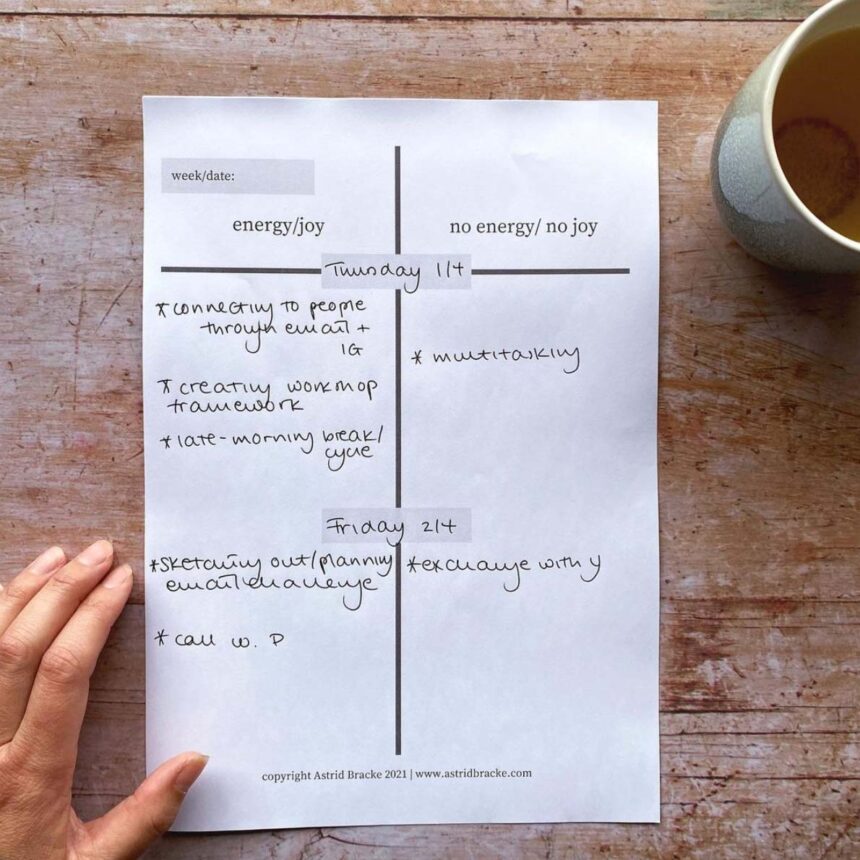 week/date:
energy/joy
no energy/ no joy
Thursday 1/4
* connecting to people
through email +
IG
* creating workshop
framework
* late-morning break/
cycle
* multitasking
Friday 2/4
* sketching out/planning
email challenge
* call w. P
* exchange with Y
copyright Astrid Bracke 2021 | www.astridbracke.com